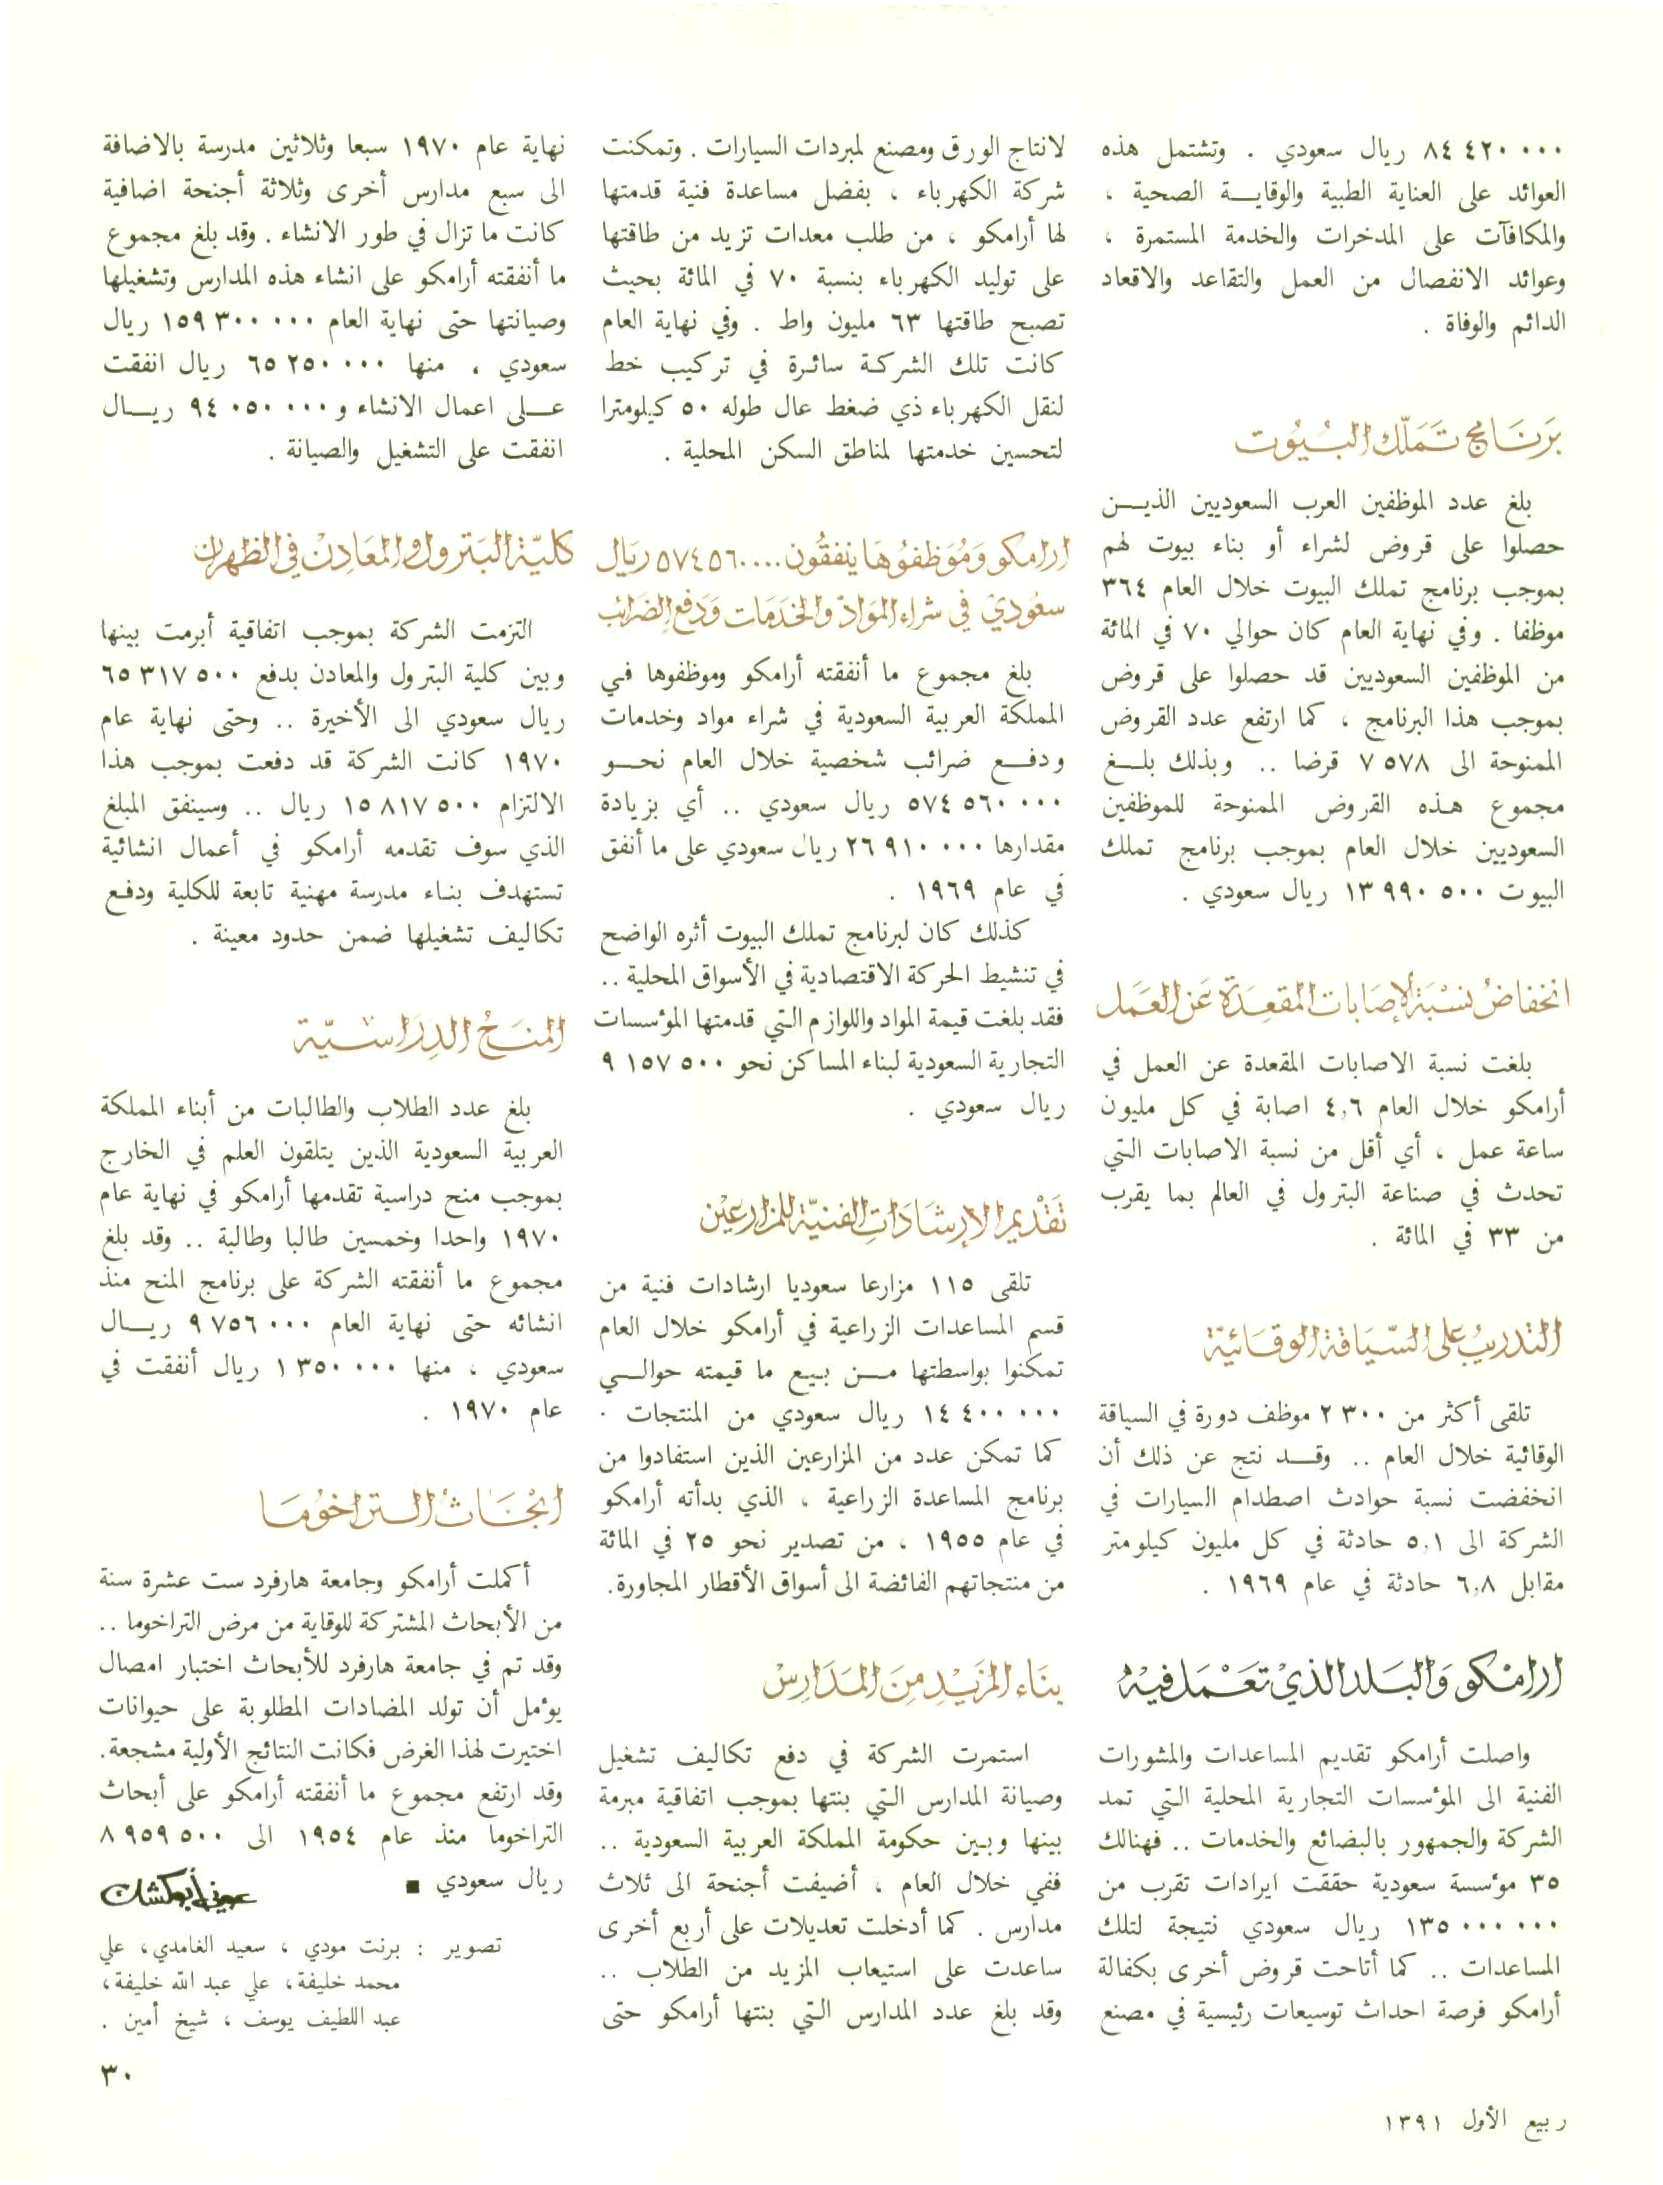 ٨٤ ٤٢٠ ٠٠٠ ريال سعودي . وتشتمل هذه
العوائد على العناية الطبية والوقايـــة الصحية ،
والمكافآت على المدخرات والخدمة المستمرة ،
وعوائد الانفصال من العمل والتقاعد والاقعاد
الدائم والوفاة .
بَرنَامج تَملّك البُيُوت
بلغ عدد الموظفين العرب السعوديين الذيـــن
حصلوا على قروض لشراء أو بناء بيوت لهم
بموجب برنامج تملك البيوت خلال العام ٣٦٤
موظفا . وفي نهاية العام كان حوالي ٧٠ في المائة
من الموظفين السعوديين قد حصلوا على قروض
بموجب هذا البرنامج ، كما ارتفع عدد القروض
الممنوحة الى ٧ ٥٧٨ قرضا .. وبذلك بلـــغ
مجموع هذه القروض الممنوحة للموظفين
السعوديين خلال العام بموجب برنامج تملك
البيوت ١٣ ٩٩٠ ٥٠٠ ريال سعودي .
انخفاضُ نسْبَة الإصَابات المقعِدَة عَن العَمَل
بلغت نسبة الاصابات المقعدة عن العمل في
أرامكو خلال العام ٤,٦ اصابة في كل مليون
ساعة عمل ، أي أقل من نسبة الاصابات التي
تحدث في صناعة البترول في العالم بما يقرب
من ٣٣ في المائة .
التدريبُ على السّيَاقة الوقَائيّة
تلقى أكثر من ٢ ٣٠٠ موظف دورة في السياقة
الوقائية خلال العام .. وقـــد نتج عن ذلك أن
انخفضت نسبة حوادث اصطدام السيارات في
الشركة الى ٥,١ حادثة في كل مليون كيلومتر
مقابل ٦,٨ حادثة في عام ١٩٦٩ .
ارامْكو وَالبَلد الذيْ تعْمَل فيْه
واصلت أرامكو تقديم المساعدات والمشورات
الفنية الى المؤسسات التجارية المحلية التي تمد
الشركة والجمهور بالبضائع والخدمات .. فهنالك
٣٥ مؤسسة سعودية حققت ايرادات تقرب من
١٣٥ ٠٠٠ ٠٠٠ ريال سعودي نتيجة لتلك
المساعدات .. كما أتاحت قروض أخرى بكفالة
أرامكو فرصة احداث توسيعات رئيسية في مصنع
لانتاج الورق ومصنع لمبردات السيارات . وتمكنت
شركة الكهرباء ، بفضل مساعدة فنية قدمتها
لها أرامكو ، من طلب معدات تزيد من طاقتها
على توليد الكهرباء بنسبة ٧٠ في المائة بحيث
تصبح طاقتها ٦٣ مليون واط . وفي نهاية العام
كانت تلك الشركة سائرة في تركيب خط
لنقل الكهرباء ذي ضغط عال طوله ٥٠ كيلومترا
لتحسين خدمتها لمناطق السكن المحلية .
ارامكو وَمُوَظفوُهَا ينفقُون ٥٧٤٥٦٠٠٠٠ ريَال
سعُوديّ في شراء المَوَادّ والخدَمَات وَدَفع الضَرَائب
بلغ مجموع ما أنفقته أرامكو وموظفوها في
المملكة العربية السعودية في شراء مواد وخدمات
ودفـــع ضرائب شخصية خلال العام نحـــو
٥٧٤ ٥٦٠ ٠٠٠ ريال سعودي .. أي بزيادة
مقدارها ٢٦ ٩١٠ ٠٠٠ ريال سعودي على ما أنفق
في عام ١٩٦٩ .
كذلك كان لبرنامج تملك البيوت أثره الواضح
في تنشيط الحركة الاقتصادية في الأسواق المحلية ..
فقد بلغت قيمة المواد واللوازم التي قدمتها المؤسسات
التجارية السعودية لبناء المساكن نحو ٩ ١٥٧ ٥٠٠
ريال سعودي .
تَقْديم الإرشَادَاتِ الفنيّة للمزارعيْن
تلقى ١١٥ مزارعا سعوديا ارشادات فنية من
قسم المساعدات الزراعية في أرامكو خلال العام
تمكنوا بواسطتها مـــن بيع ما قيمته حوالـــي
١٤ ٤٠٠ ٠٠٠ ريال سعودي من المنتجات .
كما تمكن عدد من المزارعين الذين استفادوا من
برنامج المساعدة الزراعية ، الذي بدأته أرامكو
في عام ١٩٥٥ ، من تصدير نحو ٢٥ في المائة
من منتجاتهم الفائضة الى أسواق الأقطار المجاورة.
بنَاء المزيْدِ مِنَ المَدَارسْ
استمرت الشركة في دفع تكاليف تشغيل
وصيانة المدارس التي بنتها بموجب اتفاقية مبرمة
بينها وبين حكومة المملكة العربية السعودية ..
ففي خلال العام ، أضيفت أجنحة الى ثلاث
مدارس . كما أدخلت تعديلات على أربع أخرى
ساعدت على استيعاب المزيد من الطلاب ..
وقد بلغ عدد المدارس التي بنتها أرامكو حتى
نهاية عام ١٩٧٠ سبعا وثلاثين مدرسة بالاضافة
الى سبع مدارس أخرى وثلاثة أجنحة اضافية
كانت ما تزال في طور الانشاء . وقد بلغ مجموع
ما أنفقته أرامكو على انشاء هذه المدارس وتشغيلها
وصيانتها حتى نهاية العام ١٥٩ ٣٠٠ ٠٠٠ ريال
سعودي ، منها ٦٥ ٢٥٠ ٠٠٠ ريال انفقت
عـــلى اعمال الانشاء و ٩٤ ٠٥٠ ٠٠٠ ريـــال
انفقت على التشغيل والصيانة .
كليّة البَترول والمعَادِنْ في الظهران
التزمت الشركة بموجب اتفاقية أبرمت بينها
وبين كلية البترول والمعادن بدفع ٦٥ ٣١٧ ٥٠٠
ريال سعودي الى الأخيرة .. وحتى نهاية عام
١٩٧٠ كانت الشركة قد دفعت بموجب هذا
الالتزام ١٥ ٨١٧ ٥٠٠ ريال .. وسينفق المبلغ
الذي سوف تقدمه أرامكو في أعمال انشائية
تستهدف بناء مدرسة مهنية تابعة للكلية ودفع
تكاليف تشغيلها ضمن حدود معينة .
المنَحُ الدِرَاسيّة
بلغ عدد الطلاب والطالبات من أبناء المملكة
العربية السعودية الذين يتلقون العلم في الخارج
بموجب منح دراسية تقدمها أرامكو في نهاية عام
١٩٧٠ واحدا وخمسين طالبا وطالبة .. وقد بلغ
مجموع ما أنفقته الشركة على برنامج المنح منذ
انشائه حتى نهاية العام ٩ ٧٥٦ ٠٠٠ ريـــال
سعودي ، منها ١ ٣٥٠ ٠٠٠ ريال أنفقت في
عام ١٩٧٠ .
ابْحَاثُ التراخوُمَا
أكملت أرامكو وجامعة هارفرد ست عشرة سنة
من الأبحاث المشتركة للوقاية من مرض التراخوما ..
وقد تم في جامعة هارفرد للأبحاث اختبار امصال
يؤمل أن تولد المضادات المطلوبة على حيوانات
اختيرت لهذا الغرض فكانت النتائج الأولية مشجعة.
وقد ارتفع مجموع ما أنفقته أرامكو على أبحاث
التراخوما منذ عام ١٩٥٤ الى ٨ ٩٥٩ ٥٠٠
ريال سعودي ■
عوني أبوكشك
تصوير : برنت مودي ، سعيد الغامدي، علي
محمد خليفة، علي عبد الله خليفة،
عبد اللطيف يوسف ، شيخ أمين .
٣٠
ربيع الأول ١٣٩١